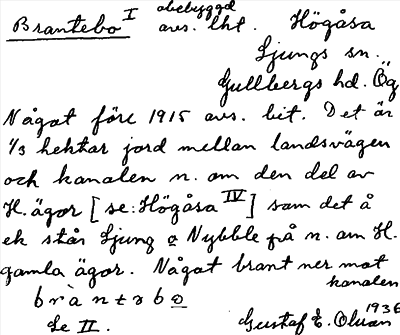 Brantebo I obebyggd avs. lht. Högåsa
Ljungs sn.
Gullbergs hd. Ög
Något före 1915 avs. bit. Det är
1/3 hektar jord mellan landsvägen
och kanalen n. om den del av
H. ägor [se: Högåsa IV] som det å
ek står Ljung o Nybble på n. om H.
gamla ägor. Något brant ner mot
kanalen
bràntəbo
Se II.
Gustaf E. Olsson 1936